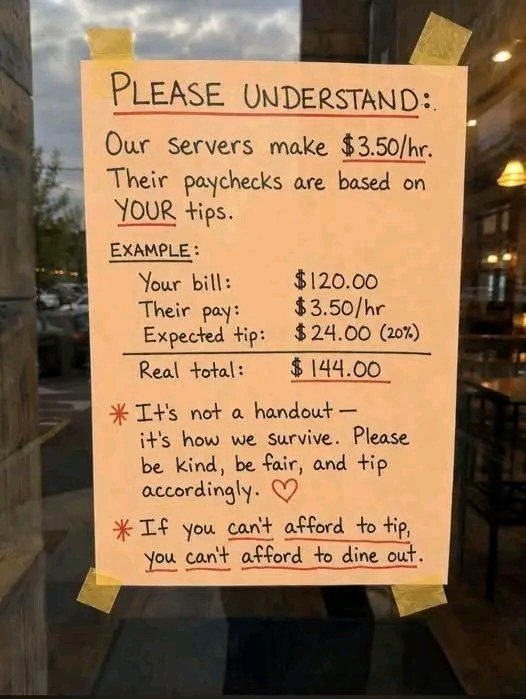 PLEASE UNDERSTAND:
Our servers make $3.50/hr.
Their paychecks are based on
YOUR tips.
EXAMPLE:
Your bill: $120.00
Their pay: $3.50/hr
Expected tip: $24.00 (20%)
Real total: $144.00
* It's not a handout —
it's how we survive. Please
be kind, be fair, and tip
accordingly. ♡
* If you can't afford to tip,
you can't afford to dine out.